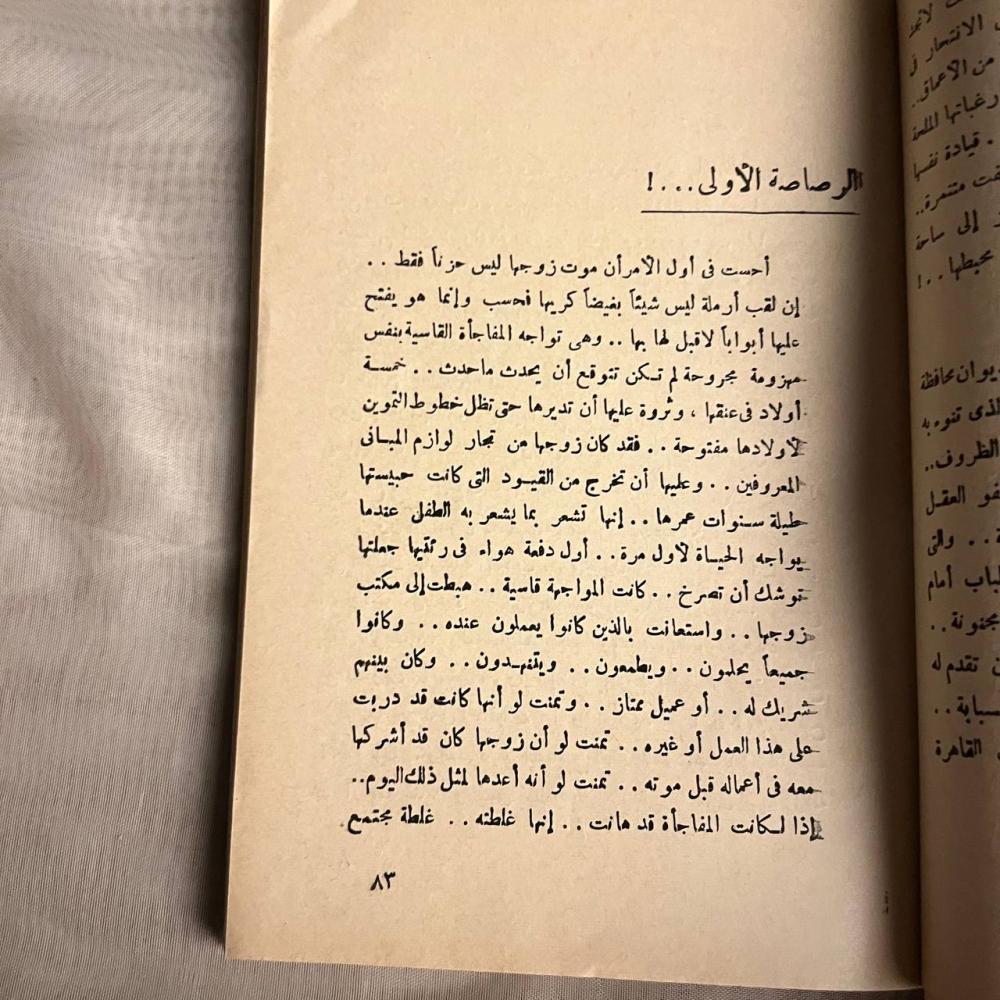 الرصاصة الأولى...!
أحست فى أول الأمر أن موت زوجها ليس حزناً فقط ..
إن لقب أرملة ليس شيئاً بغيضاً كريها فحسب وإنما هو يفتح
عليها أبواباً لاقبل لها بها .. وهى تواجه المفاجأة القاسية بنفس
مهزومة مجروحة لم تكن تتوقع أن يحدث ماحدث .. خمسة
أولاد فى عنقها ، وثروة عليها أن تديرها حتى تظل خطوط التموين
لأولادها مفتوحة .. فقد كان زوجها من تجار لوازم المبانى
المعروفين .. وعليها أن تخرج من القيود التى كانت حبيستها
طيلة سنوات عمرها .. إنها تشعر بما يشعر به الطفل عندما
يواجه الحياة لأول مرة .. أول دفعة هواء فى رئتيها جعلتها
توشك أن تصرخ .. كانت المواجهة قاسية .. هبطت إلى مكتب
زوجها .. واستعانت بالذين كانوا يعملون عنده .. وكانوا
جميعاً يحلمون .. ويطمعون .. ويتنهدون .. وكان بينهم
شريك له .. أو عميل ممتاز .. وتمنت لو أنها كانت قد دربت
على هذا العمل أو غيره .. تمنت لو أن زوجها كان قد أشركها
معه فى أعماله قبل موته .. تمنت لو أنه أعدها لمثل ذلك اليوم ..
إذا لكانت المفاجأة قد هانت .. إنها غلطته .. غلطة مجتمع
٨٣
الانتحار فى
من الأعماق ..
رغباتها الملحة
. قيادة نفسها
متنمرة ..
إلى ساحة
محيطها ..!
ديوان محافظة
الذى تنوء به
الظروف ..
العقل
.. والتى
أمام
مجنونة ..
تقدم له
..
القاهرة